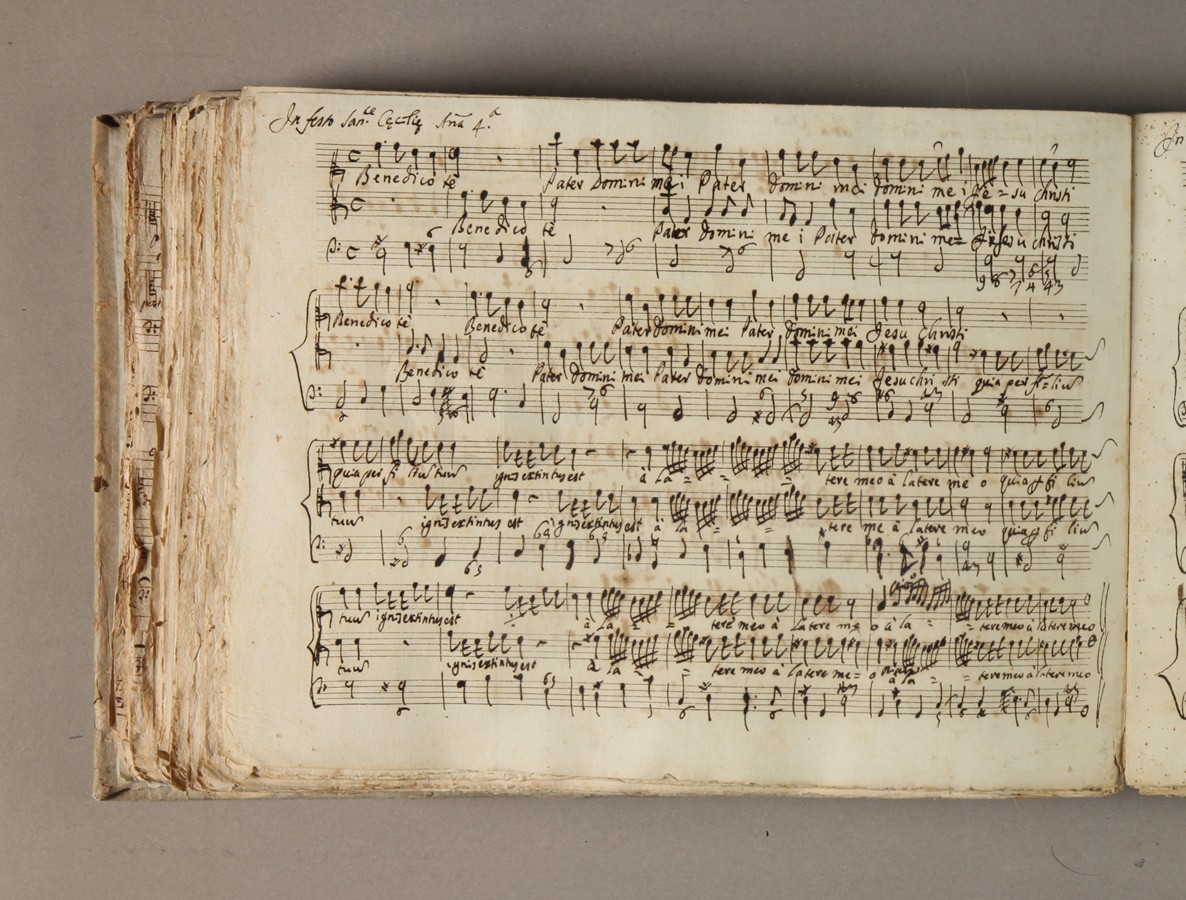 In festo San.ce Cęcilię Aña 4.a
Benedico te Pater Domini mei Pater Domini mei Domini mei Je = su christi
Benedico te Pater Domini me i Pater Domini me = i Jesu christi
Benedico te Benedico te Pater Domini mei Pater Domini mei Jesu Christi
Benedico te Pater Domini mei Pater Domini mei Domini mei Jesu chri sti quia per fi = liuʒ
quia per fi liuʒ tuuʒ ignis extintus est à la = = = tere meo à latere me o quia p fi liuʒ
tuuʒ ignis extintus est ignis extintus est à la = = tere me à latere meo quia p fi liuʒ
tuuʒ ignis extintus est à la = tere meo à latere me o à la = = tere meo à latere meo
tuuʒ ignis extintus est à la = tere meo à latere me = o à la = = tere meo à latere meo
In